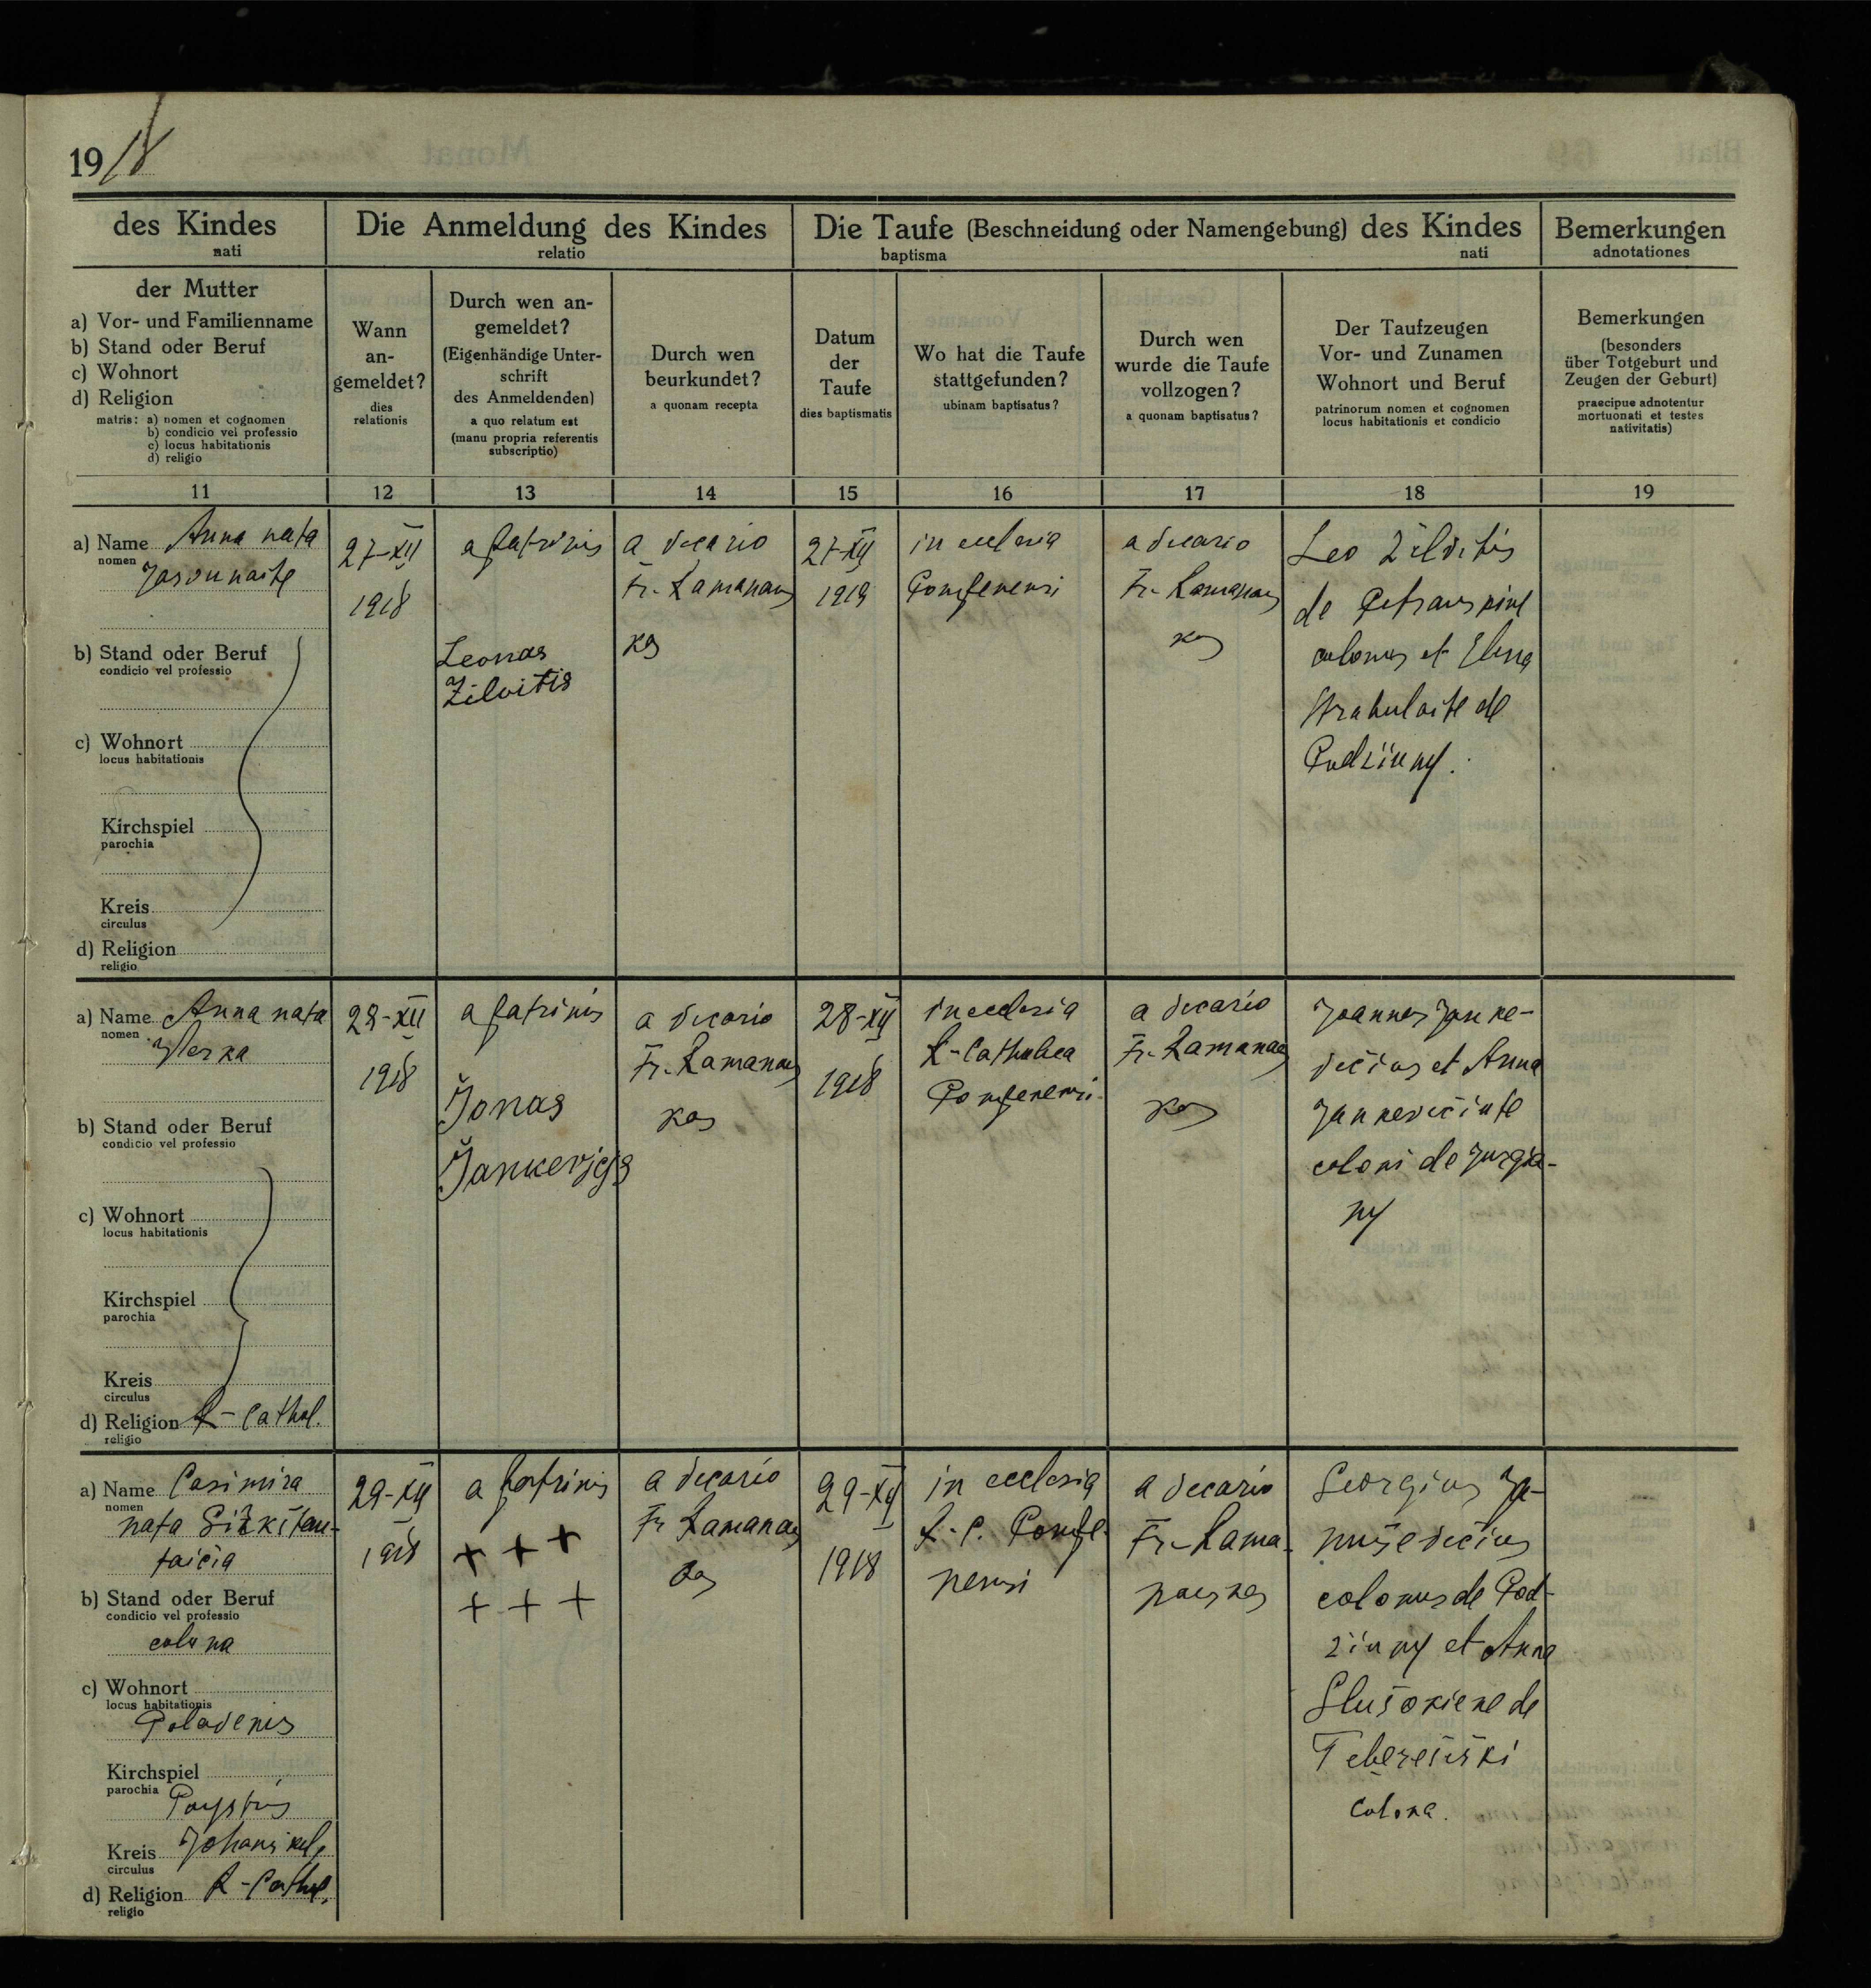 1918
des Kindes
nati
Die Anmeldung des Kindes
relatio
Die Taufe (Beschneidung oder Namengebung) des Kindes
baptisma nati
Bemerkungen
adnotationes
der Mutter
a) Vor- und Familienname
b) Stand oder Beruf
c) Wohnort
d) Religion
matris: a) nomen et cognomen
b) condicio vel professio
c) locus habitationis
d) religio
Wann
an-
gemeldet?
dies
relationis
Durch wen an-
gemeldet?
(Eigenhändige Unter-
schrift
des Anmeldenden)
a quo relatum est
(manu propria referentis
subscriptio)
Durch wen
beurkundet?
a quonam recepta
Datum
der
Taufe
dies baptismatis
Wo hat die Taufe
stattgefunden?
ubinam baptisatus?
Durch wen
wurde die Taufe
vollzogen?
a quonam baptisatus?
Der Taufzeugen
Vor- und Zunamen
Wohnort und Beruf
patrinorum nomen et cognomen
locus habitationis et condicio
Bemerkungen
(besonders
über Totgeburt und
Zeugen der Geburt)
praecipue adnotentur
mortuonati et testes
nativitatis)
11 12 13 14 15 16 17 18 19
a) Name Anna nata
nomen
b) Stand oder Beruf
condicio vel professio
c) Wohnort
locus habitationis
Kirchspiel
parochia
Kreis
circulus
d) Religion
religio
27-XII
1918
a patrinis
Leonas
Žilvitis
a vicario
Fr. Ramanaus
kas
27-XII
1918
in ecclesia
Pompenensi
a vicario
Fr. Ramanaus
kas
Leo Zilvitis
de
colonus et Elena
de
Podziuny.
a) Name Anna nata
nomen
b) Stand oder Beruf
condicio vel professio
c) Wohnort
locus habitationis
Kirchspiel
parochia
Kreis
circulus
d) Religion R-Cathol.
religio
28-XII
1918
a patrinis
Jonas
a vicario
Fr. Ramanaus
kas
28-XII
1918
in ecclesia
R-Catholica
Pompenensi
a vicario
Fr. Ramanaus
kas
Joannes Janke-
vičius et Anna
Jankevičiute
coloni de Jurgia-
ny
a) Name Casimira
nomen
nata
b) Stand oder Beruf
condicio vel professio
colona
c) Wohnort
locus habitationis
Kirchspiel
parochia
Kreis
circulus
d) Religion R-Cathol.
religio
29-XII
1918
a patrinis
+ + +
+ + +
a vicario
Fr. Ramanaus
kas
29-XII
1918
in ecclesia
R-C. Pompe-
nensi
a vicario
Fr. Rama-
nauskas
Georgius Ja-
nuševičius
colonus de Pod-
ziuny et Anna
de
colona.